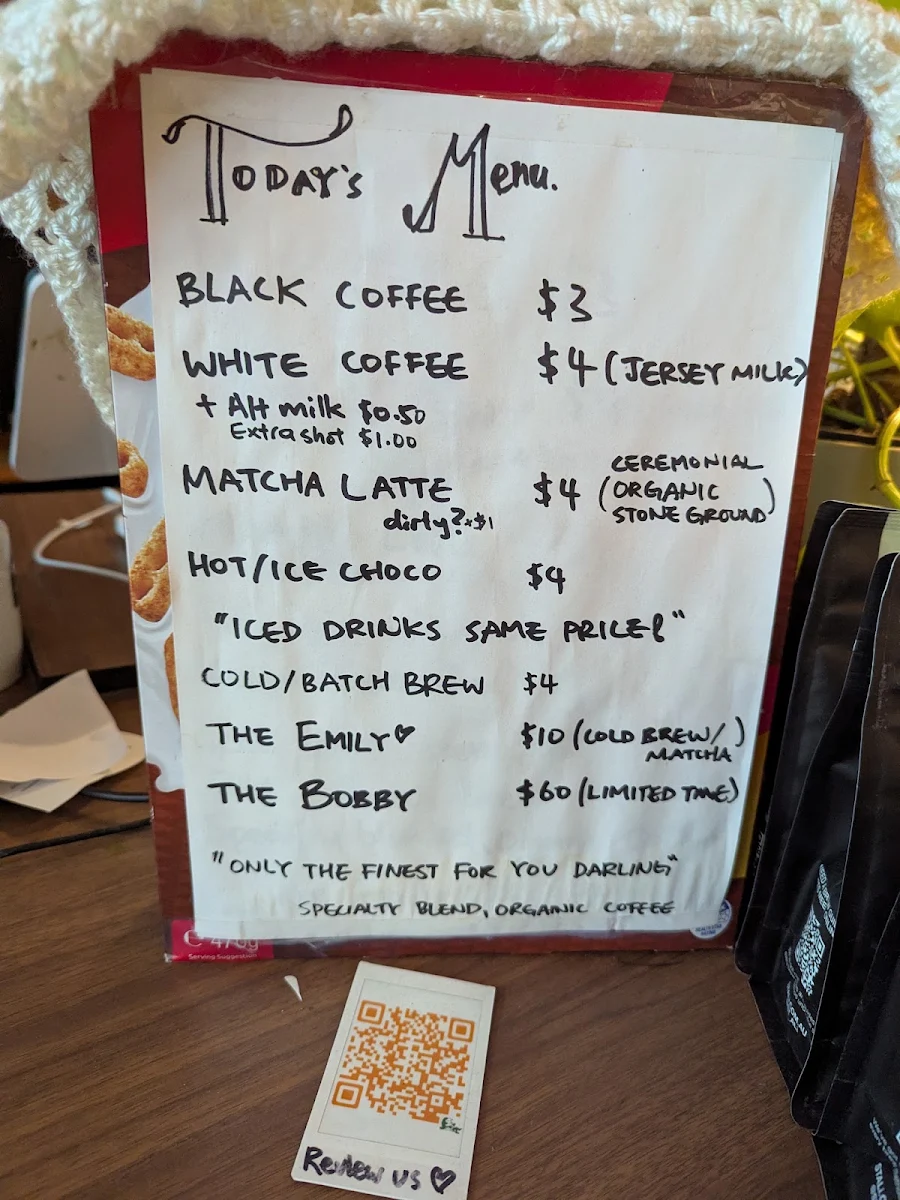 TODAY'S Menu.
BLACK COFFEE $3
WHITE COFFEE $4 (JERSEY MILK)
+ Alt milk $0.50
Extra shot $1.00
MATCHA LATTE $4 (CEREMONIAL
ORGANIC
STONE GROUND)
dirty? +$1
HOT/ICE CHOCO $4
"ICED DRINKS SAME PRICE!"
COLD/BATCH BREW $4
THE EMILY♡ $10 (COLD BREW/
MATCHA)
THE BOBBY $60 (LIMITED TIME)
"ONLY THE FINEST FOR YOU DARLING"
SPECIALTY BLEND, ORGANIC COFFEE
470g
Serving Suggestion
Review us ♡